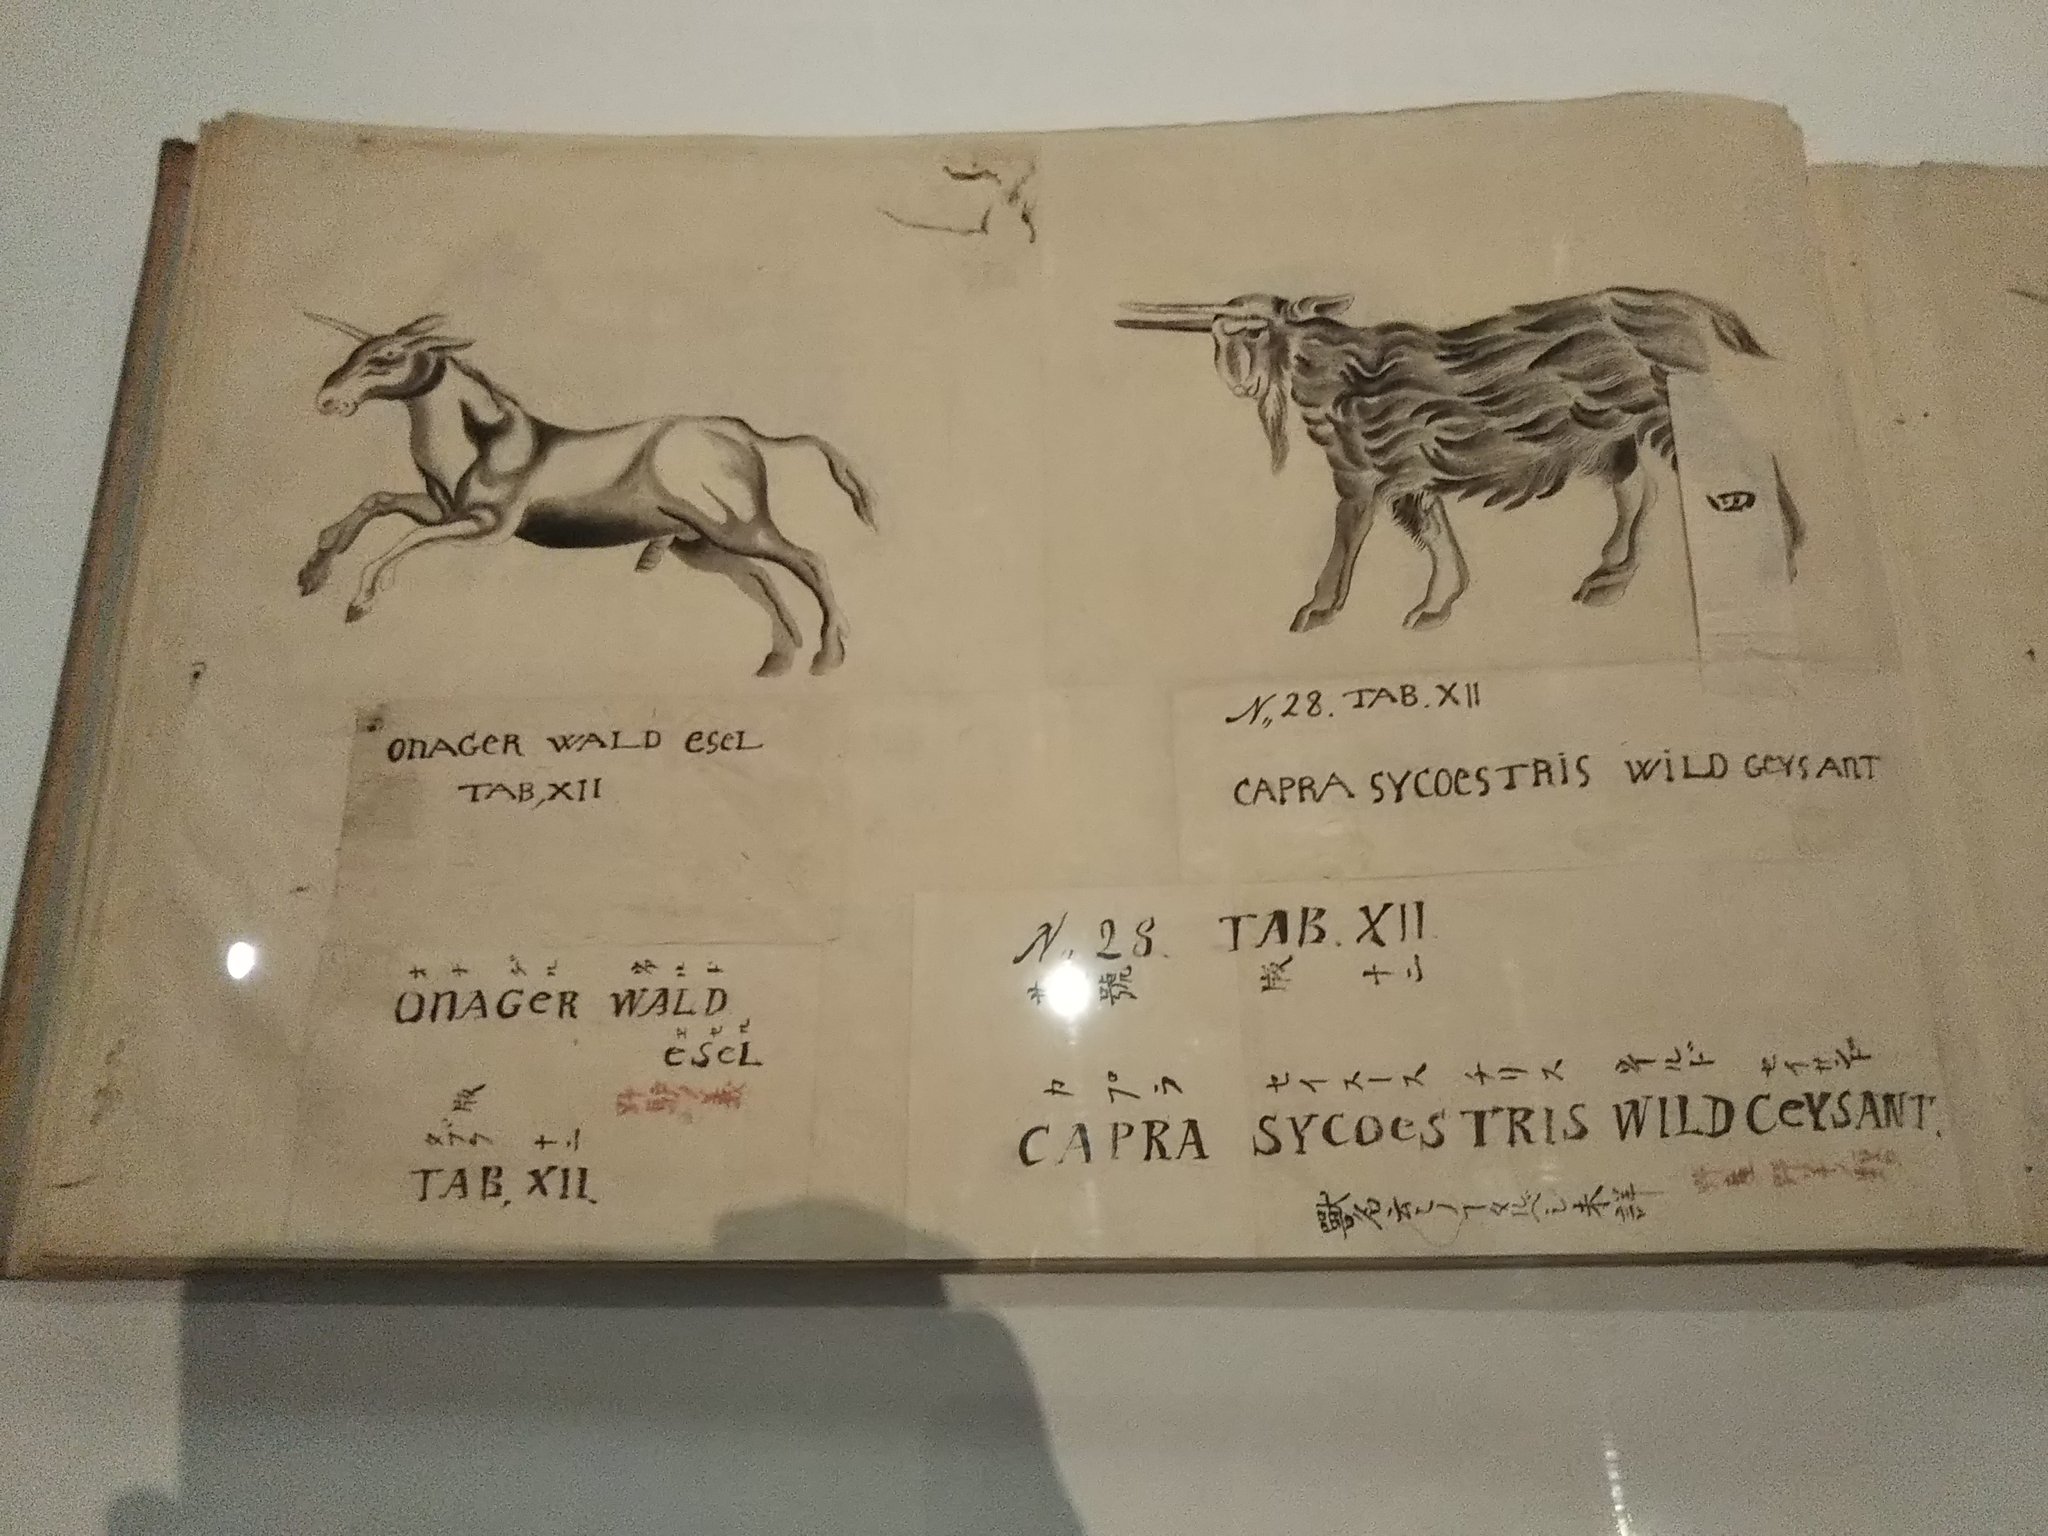 四
ONAGER WALD ESEL
TAB, XII
N,, 28. TAB. XII
CAPRA SYCOESTRIS WILD GEYSANT
オナゲル ヲルド
ONAGER WALD
エセル
ESEL
版
タブラ 十二
TAB, XII.
N,, 28. TAB. XII.
號 版 十二
カプラ セイスース チリス ヲイルド セイサント
CAPRA SYCOESTRIS WILD CEYSANT.